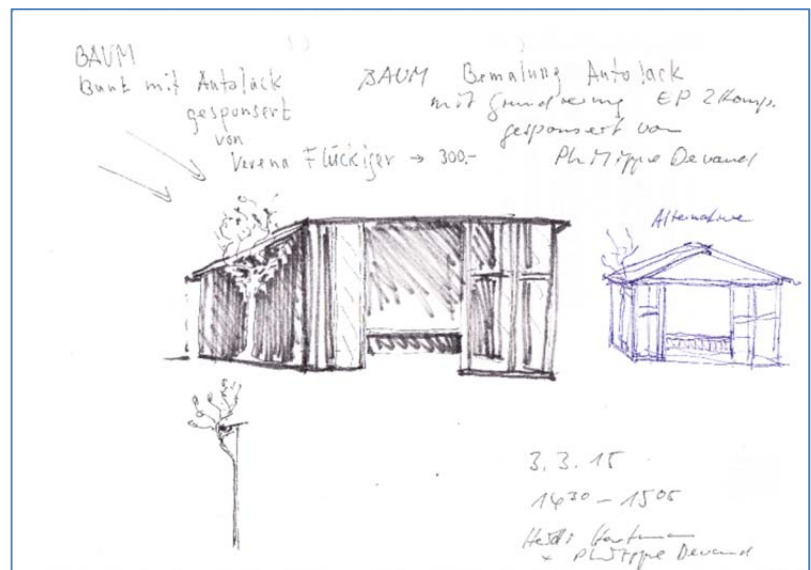 BAUM
Bunt mit Autolack
gesponsert
von
Verena Flückiger → 300.-
BAUM Bemalung Autolack
mit Grundierung EP 2Komp.
gesponsert von
Philippe Devaud
Alternative
3.3.15
14³⁰ – 15⁰⁵
Heidi
+ Philippe Devaud